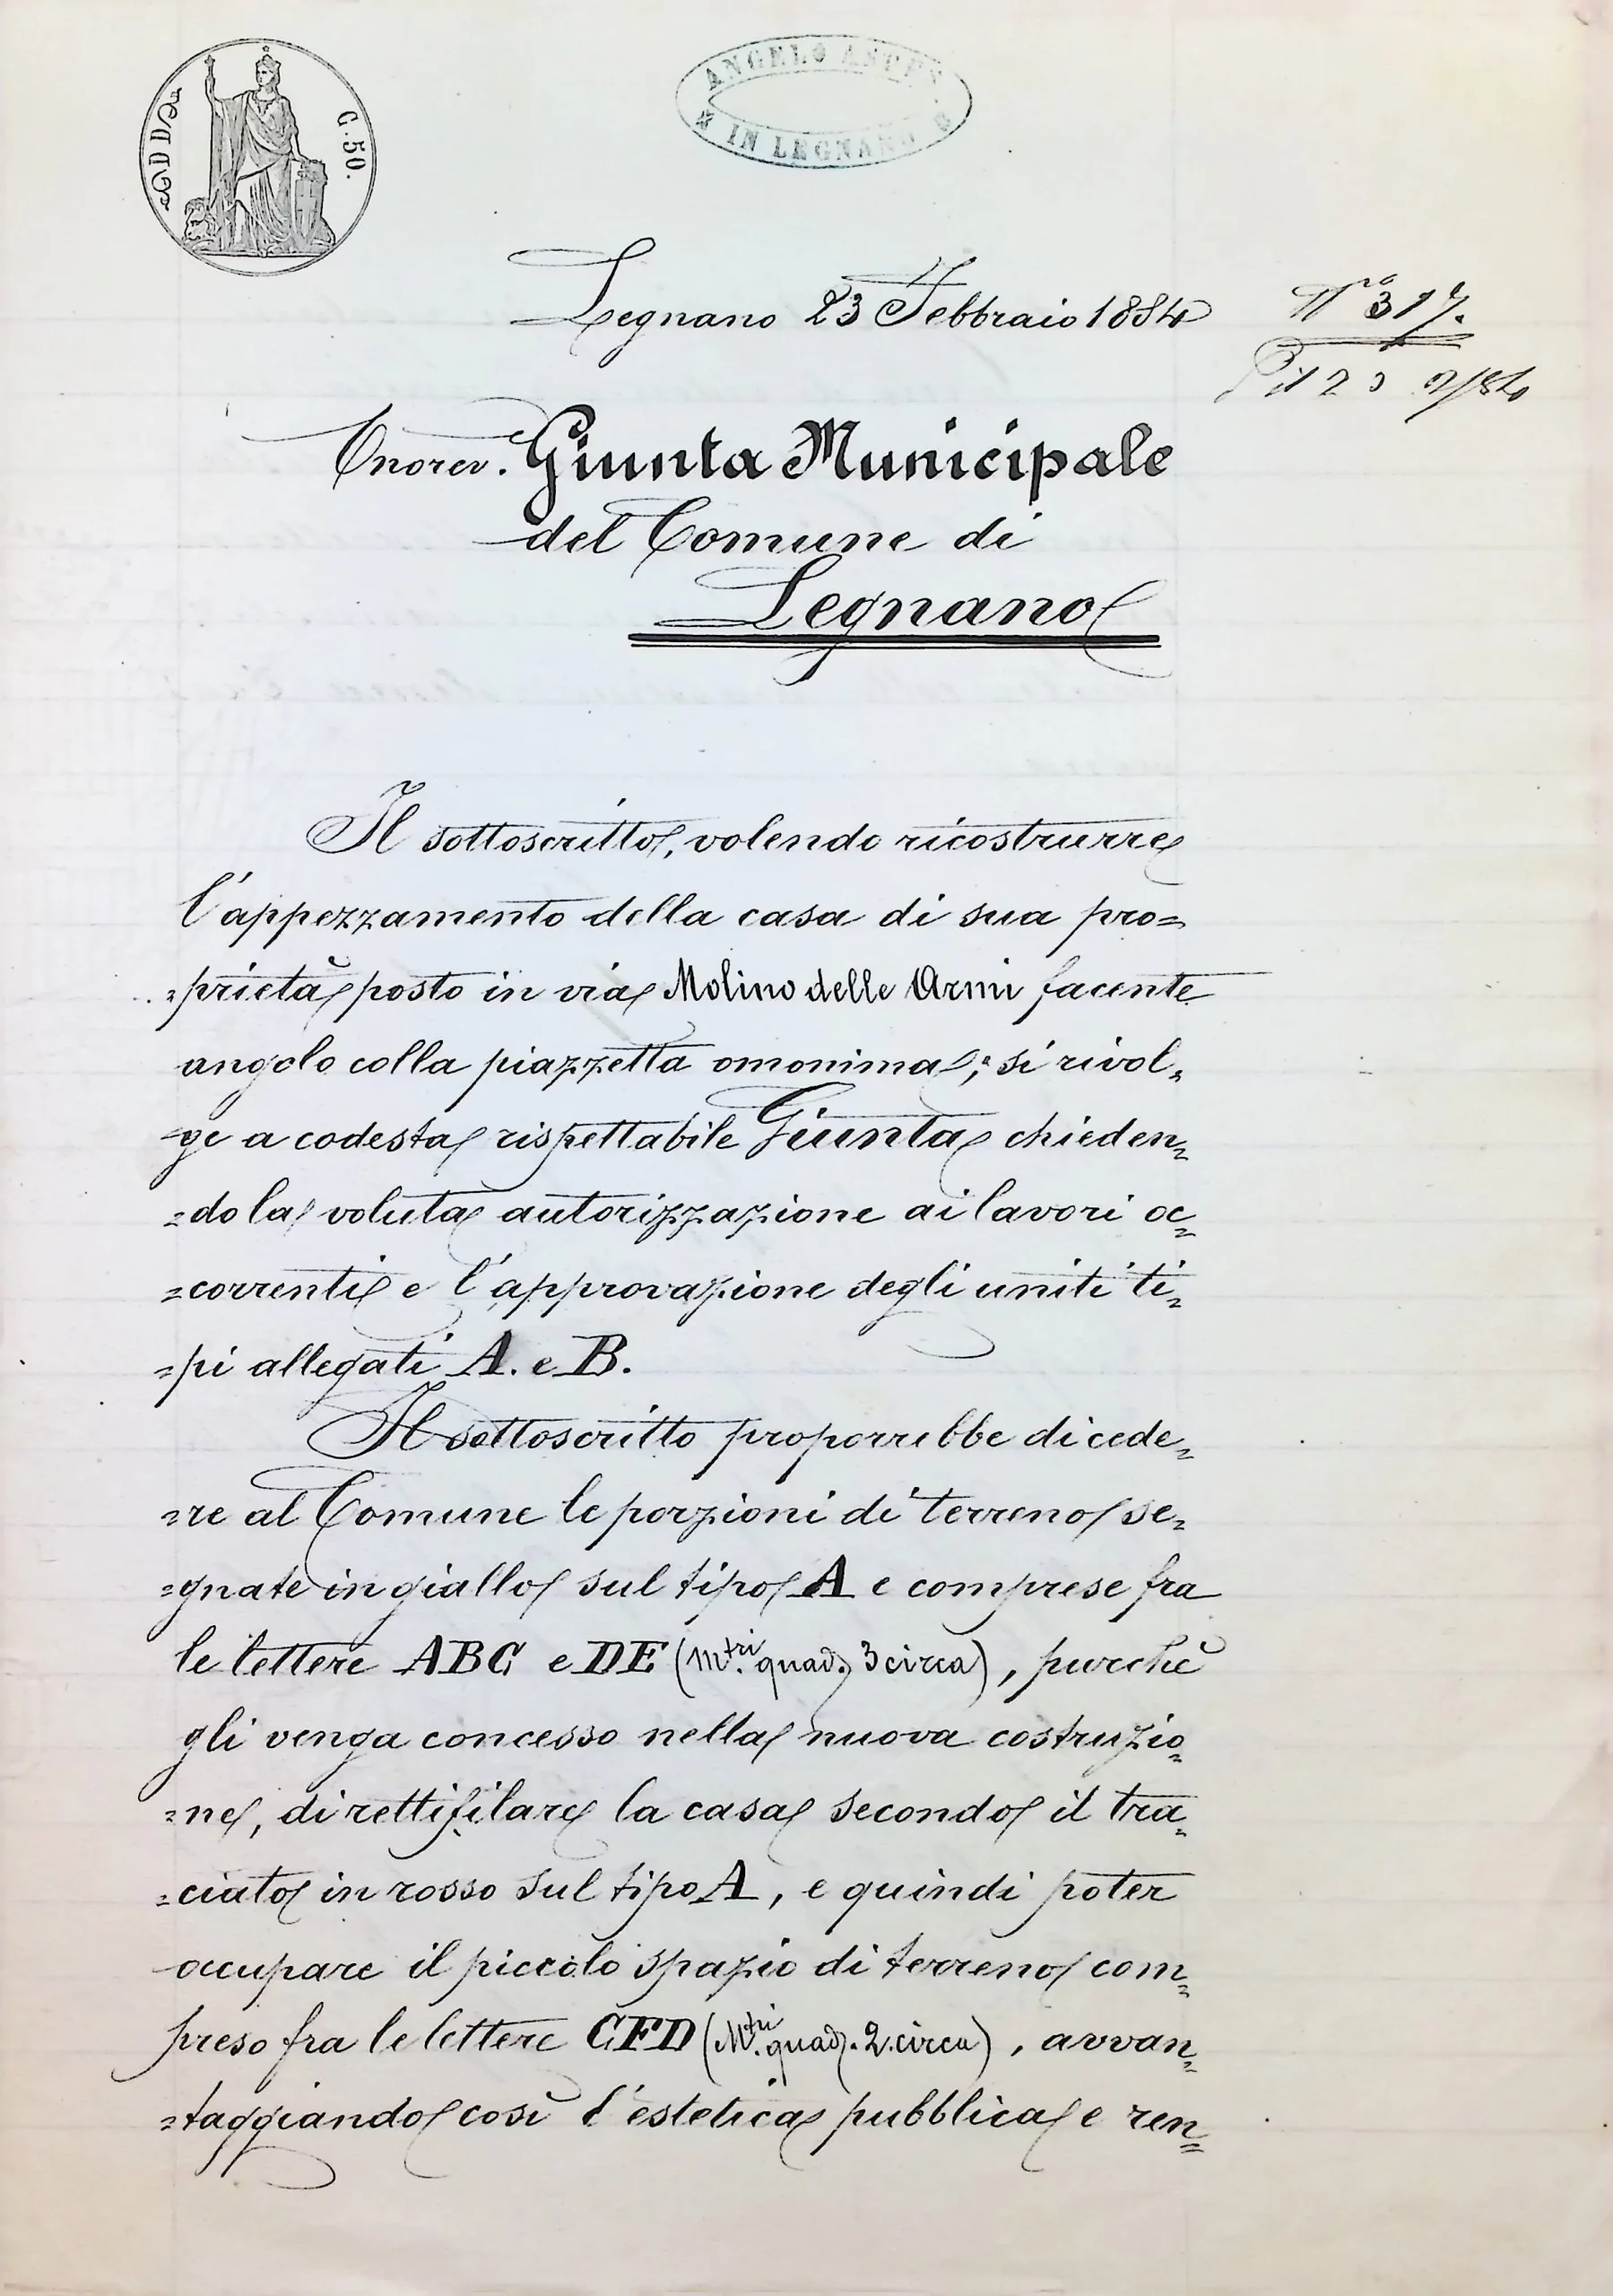 G. 50.
ANGELO
IN LEGNANO
Legnano 23 Febbraio 1884
N.o 317.
2/84
Onorev. Giunta Municipale
del Comune di
Legnano
Il sottoscritto, volendo ricostrurre
l'appezzamento della casa di sua pro=
=prietà posto in via Molino delle Armi facente
angolo colla piazzetta omonima, si rivol=
ge a codesta rispettabile Giunta chieden=
=do la voluta autorizzazione ai lavori oc=
=correnti e l'approvazione degli uniti ti=
=pi allegati A. e B.
Il sottoscritto proporrebbe di cede=
=re al Comune le porzioni di terreno se=
=gnate in giallo sul tipo A e comprese fra
le lettere ABC e DE (m.tri quad. 3 circa), purchè
gli venga concesso nella nuova costruzio=
=ne, di rettifilare la casa secondo il tra=
=ciato in rosso sul tipo A, e quindi poter
occupare il piccolo spazio di terreno com=
preso fra le lettere CFD (M.tri quad. 2. circa), avvan=
=taggiando così l'estetica pubblica e ren=